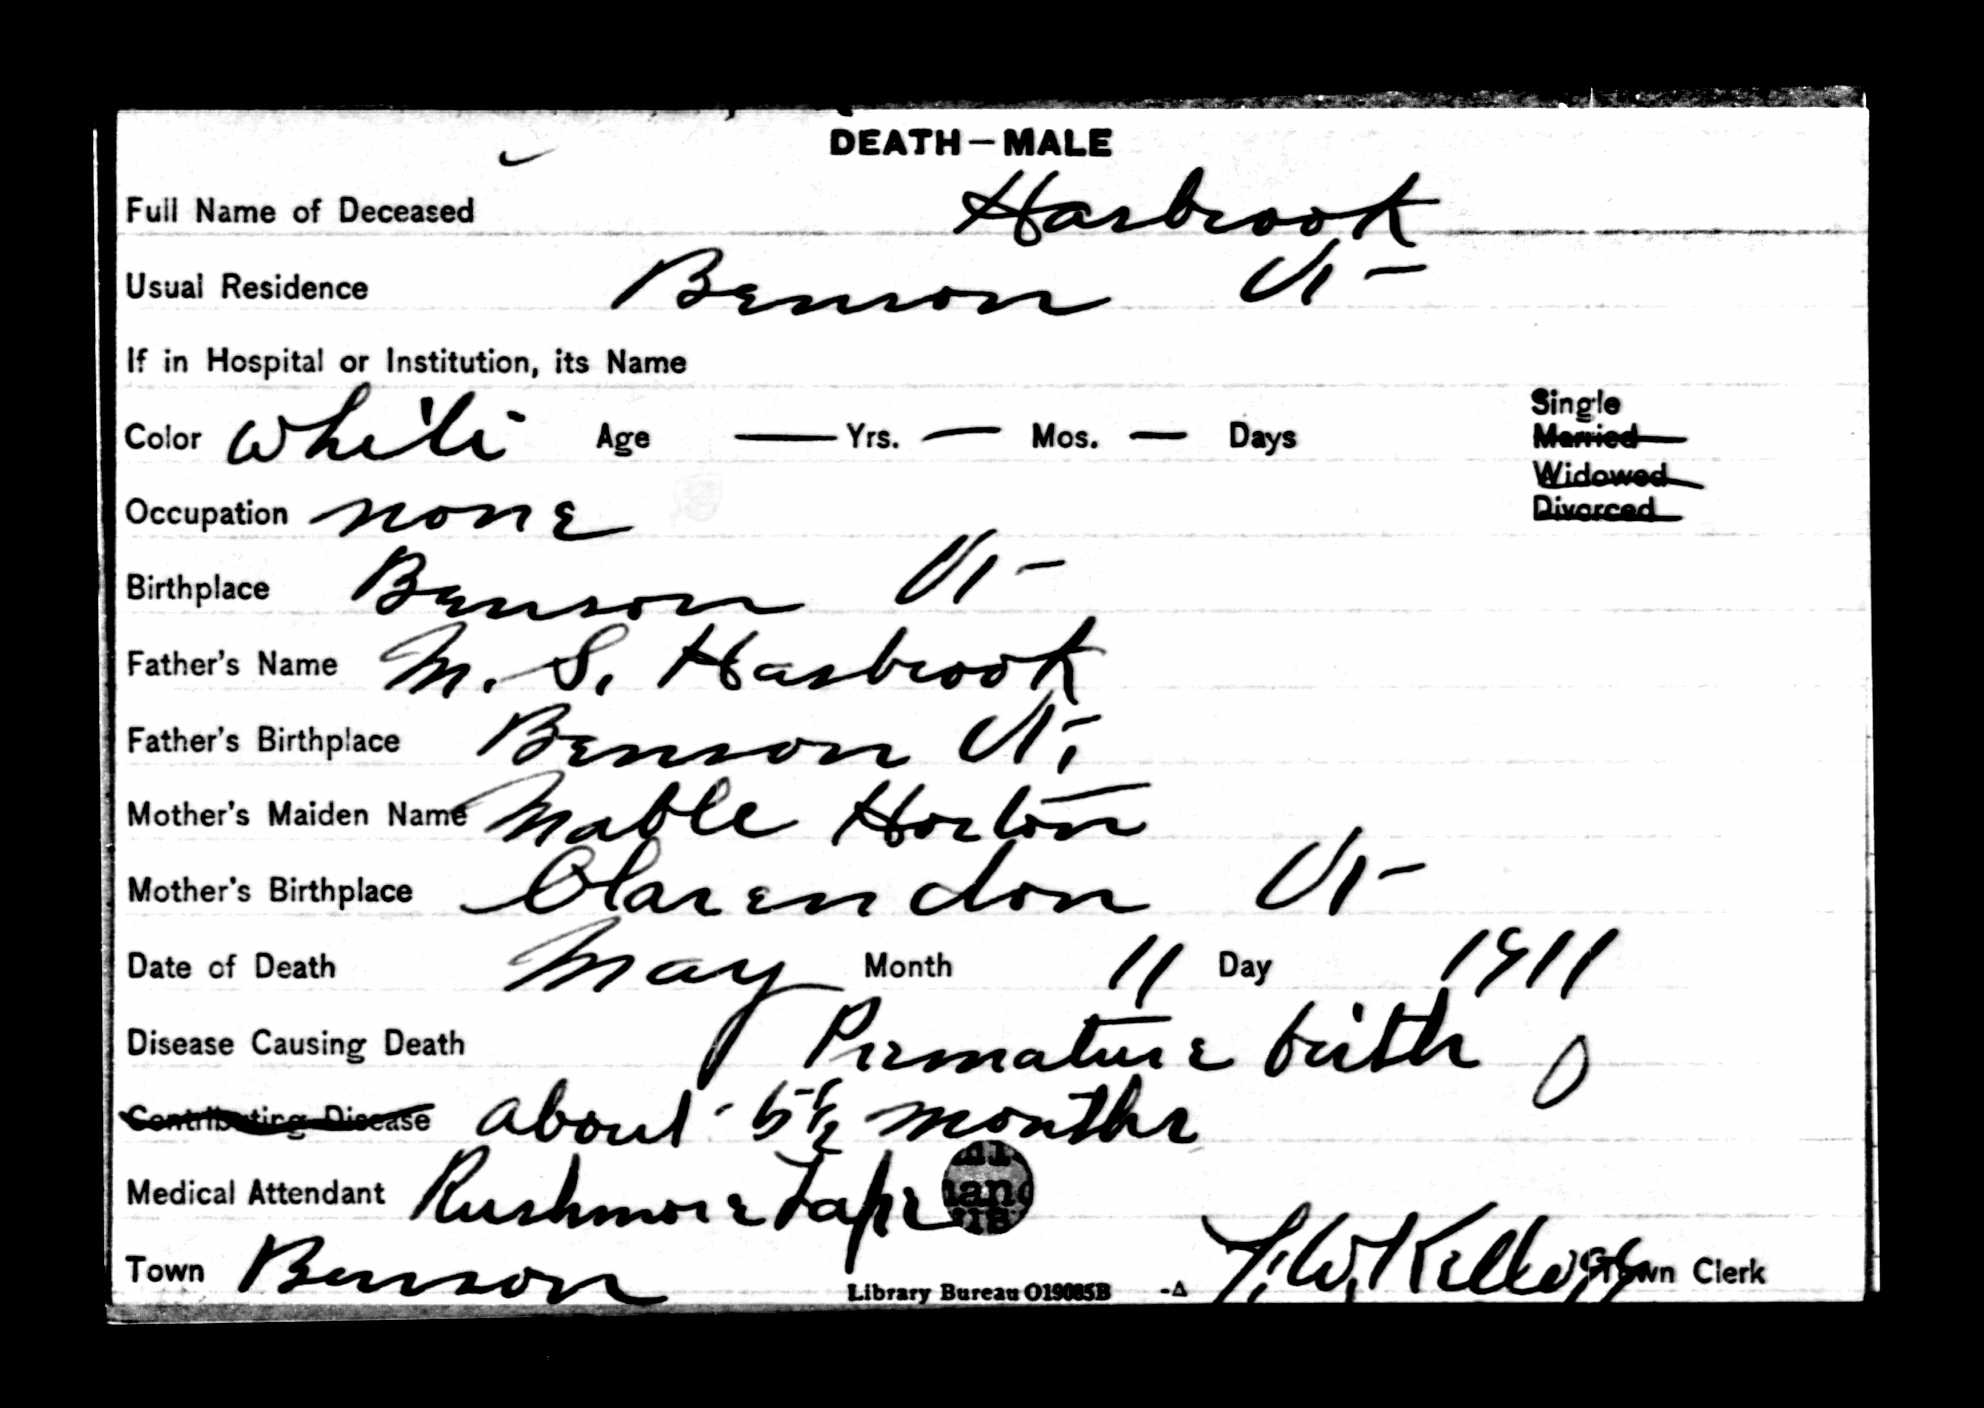 DEATH—MALE
Full Name of Deceased Hasbrook
Usual Residence Benson Vt—
If in Hospital or Institution, its Name
Color White Age — Yrs. — Mos. — Days Single
Married
Widowed
Divorced
Occupation none
Birthplace Benson Vt—
Father's Name M. S. Hasbrook
Father's Birthplace Benson Vt,
Mother's Maiden Name Mable Horton
Mother's Birthplace Clarendon Vt—
Date of Death May Month 11 Day 1911
Disease Causing Death Premature birth
Contributing Disease about 5½ months
Medical Attendant Rushmore Lape
Town Benson Kellogg Town Clerk
Library Bureau O19085B